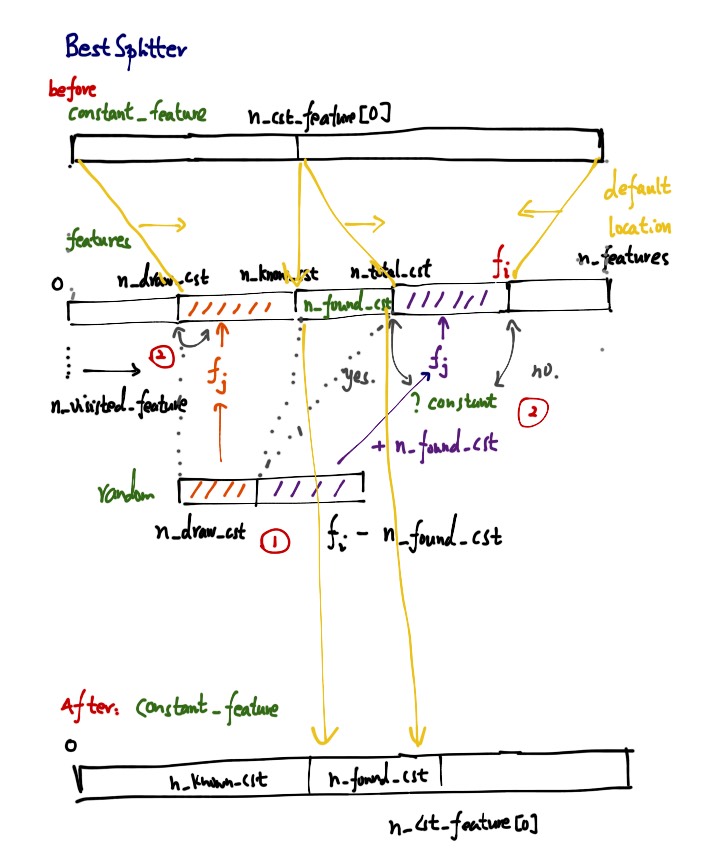 Best Splitter
before
constant_feature
n_cst_feature[0]
default
location
features
n_features
0
n_draw_cst
n_known_cst
n_total_cst
fi
n_found_cst
2
fj
yes.
fj
no.
n_visisted_feature
? constant
2
+ n_found_cst
random
n_draw_cst
1
fi - n_found_cst
After: constant_feature
0
n_known_cst
n_found_cst
n_cst_feature[0]